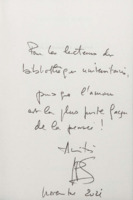 Pour les lecteurs du
bibliothèque universitaire,
pour que l'amour
est la plus forte façon
de la pensée !
Amitié
novembre 2021